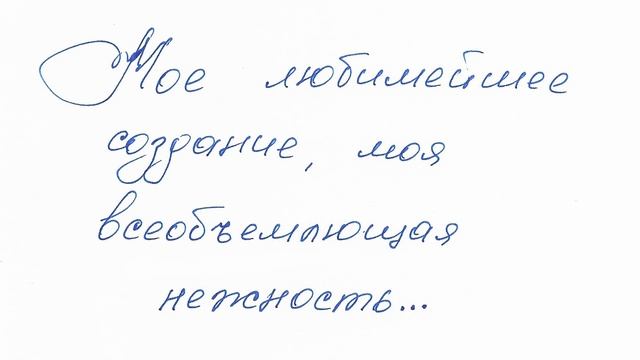 Мое любимейшее
создание, моя
всеобъемлющая
нежность...